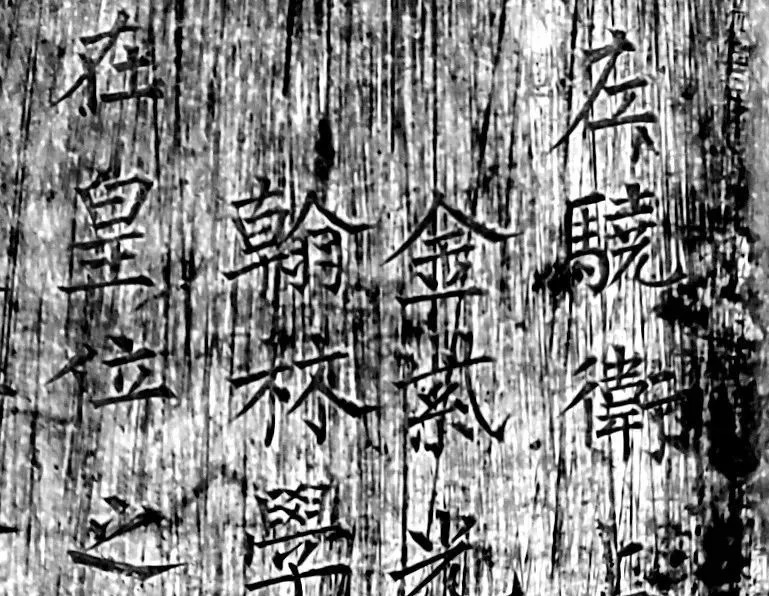 左驍衛上
金紫光
翰林學
在皇位之